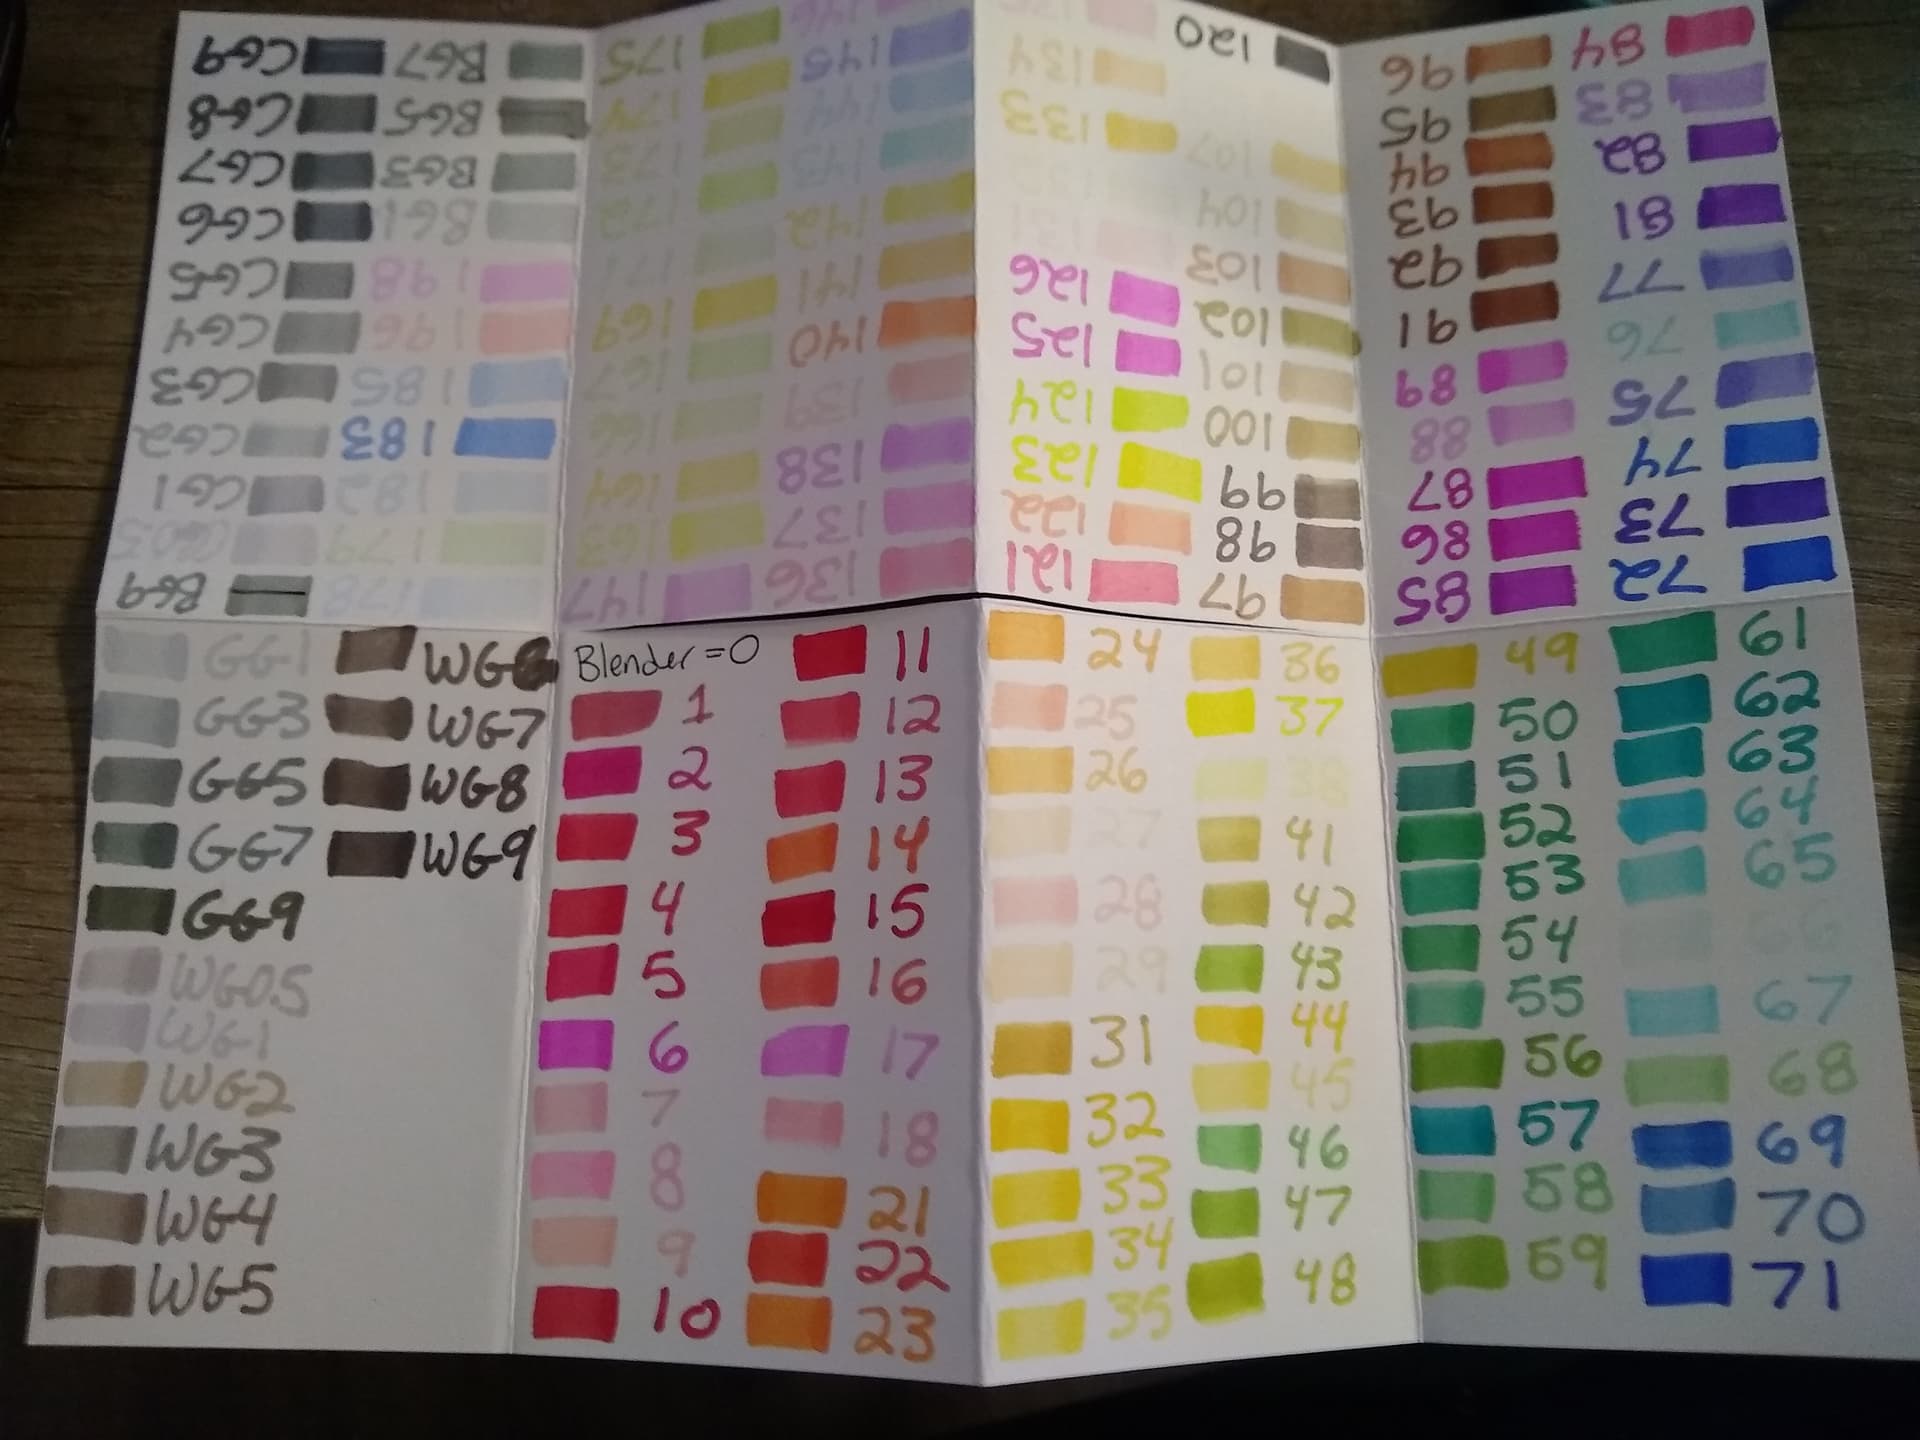 Blender=0
1
2
3
4
5
6
7
8
9
10
11
12
13
14
15
16
17
18
21
22
23
24
25
26
27
28
29
31
32
33
34
35
36
37
38
41
42
43
44
45
46
47
48
49
50
51
52
53
54
55
56
57
58
59
61
62
63
64
65
66
67
68
69
70
71
72
73
74
75
76
77
81
82
83
84
85
86
87
88
89
91
92
93
94
95
96
97
98
99
100
101
102
103
104
107
120
121
122
123
124
125
126
131
132
133
134
136
137
138
139
140
141
142
143
144
145
146
147
163
164
166
167
169
171
172
173
174
175
178
179
182
183
185
196
198
BG1
BG3
BG5
BG7
BG9
CG0.5
CG1
CG2
CG3
CG4
CG5
CG6
CG7
CG8
CG9
GG1
GG3
GG5
GG7
GG9
WG0.5
WG1
WG2
WG3
WG4
WG5
WG6
WG7
WG8
WG9